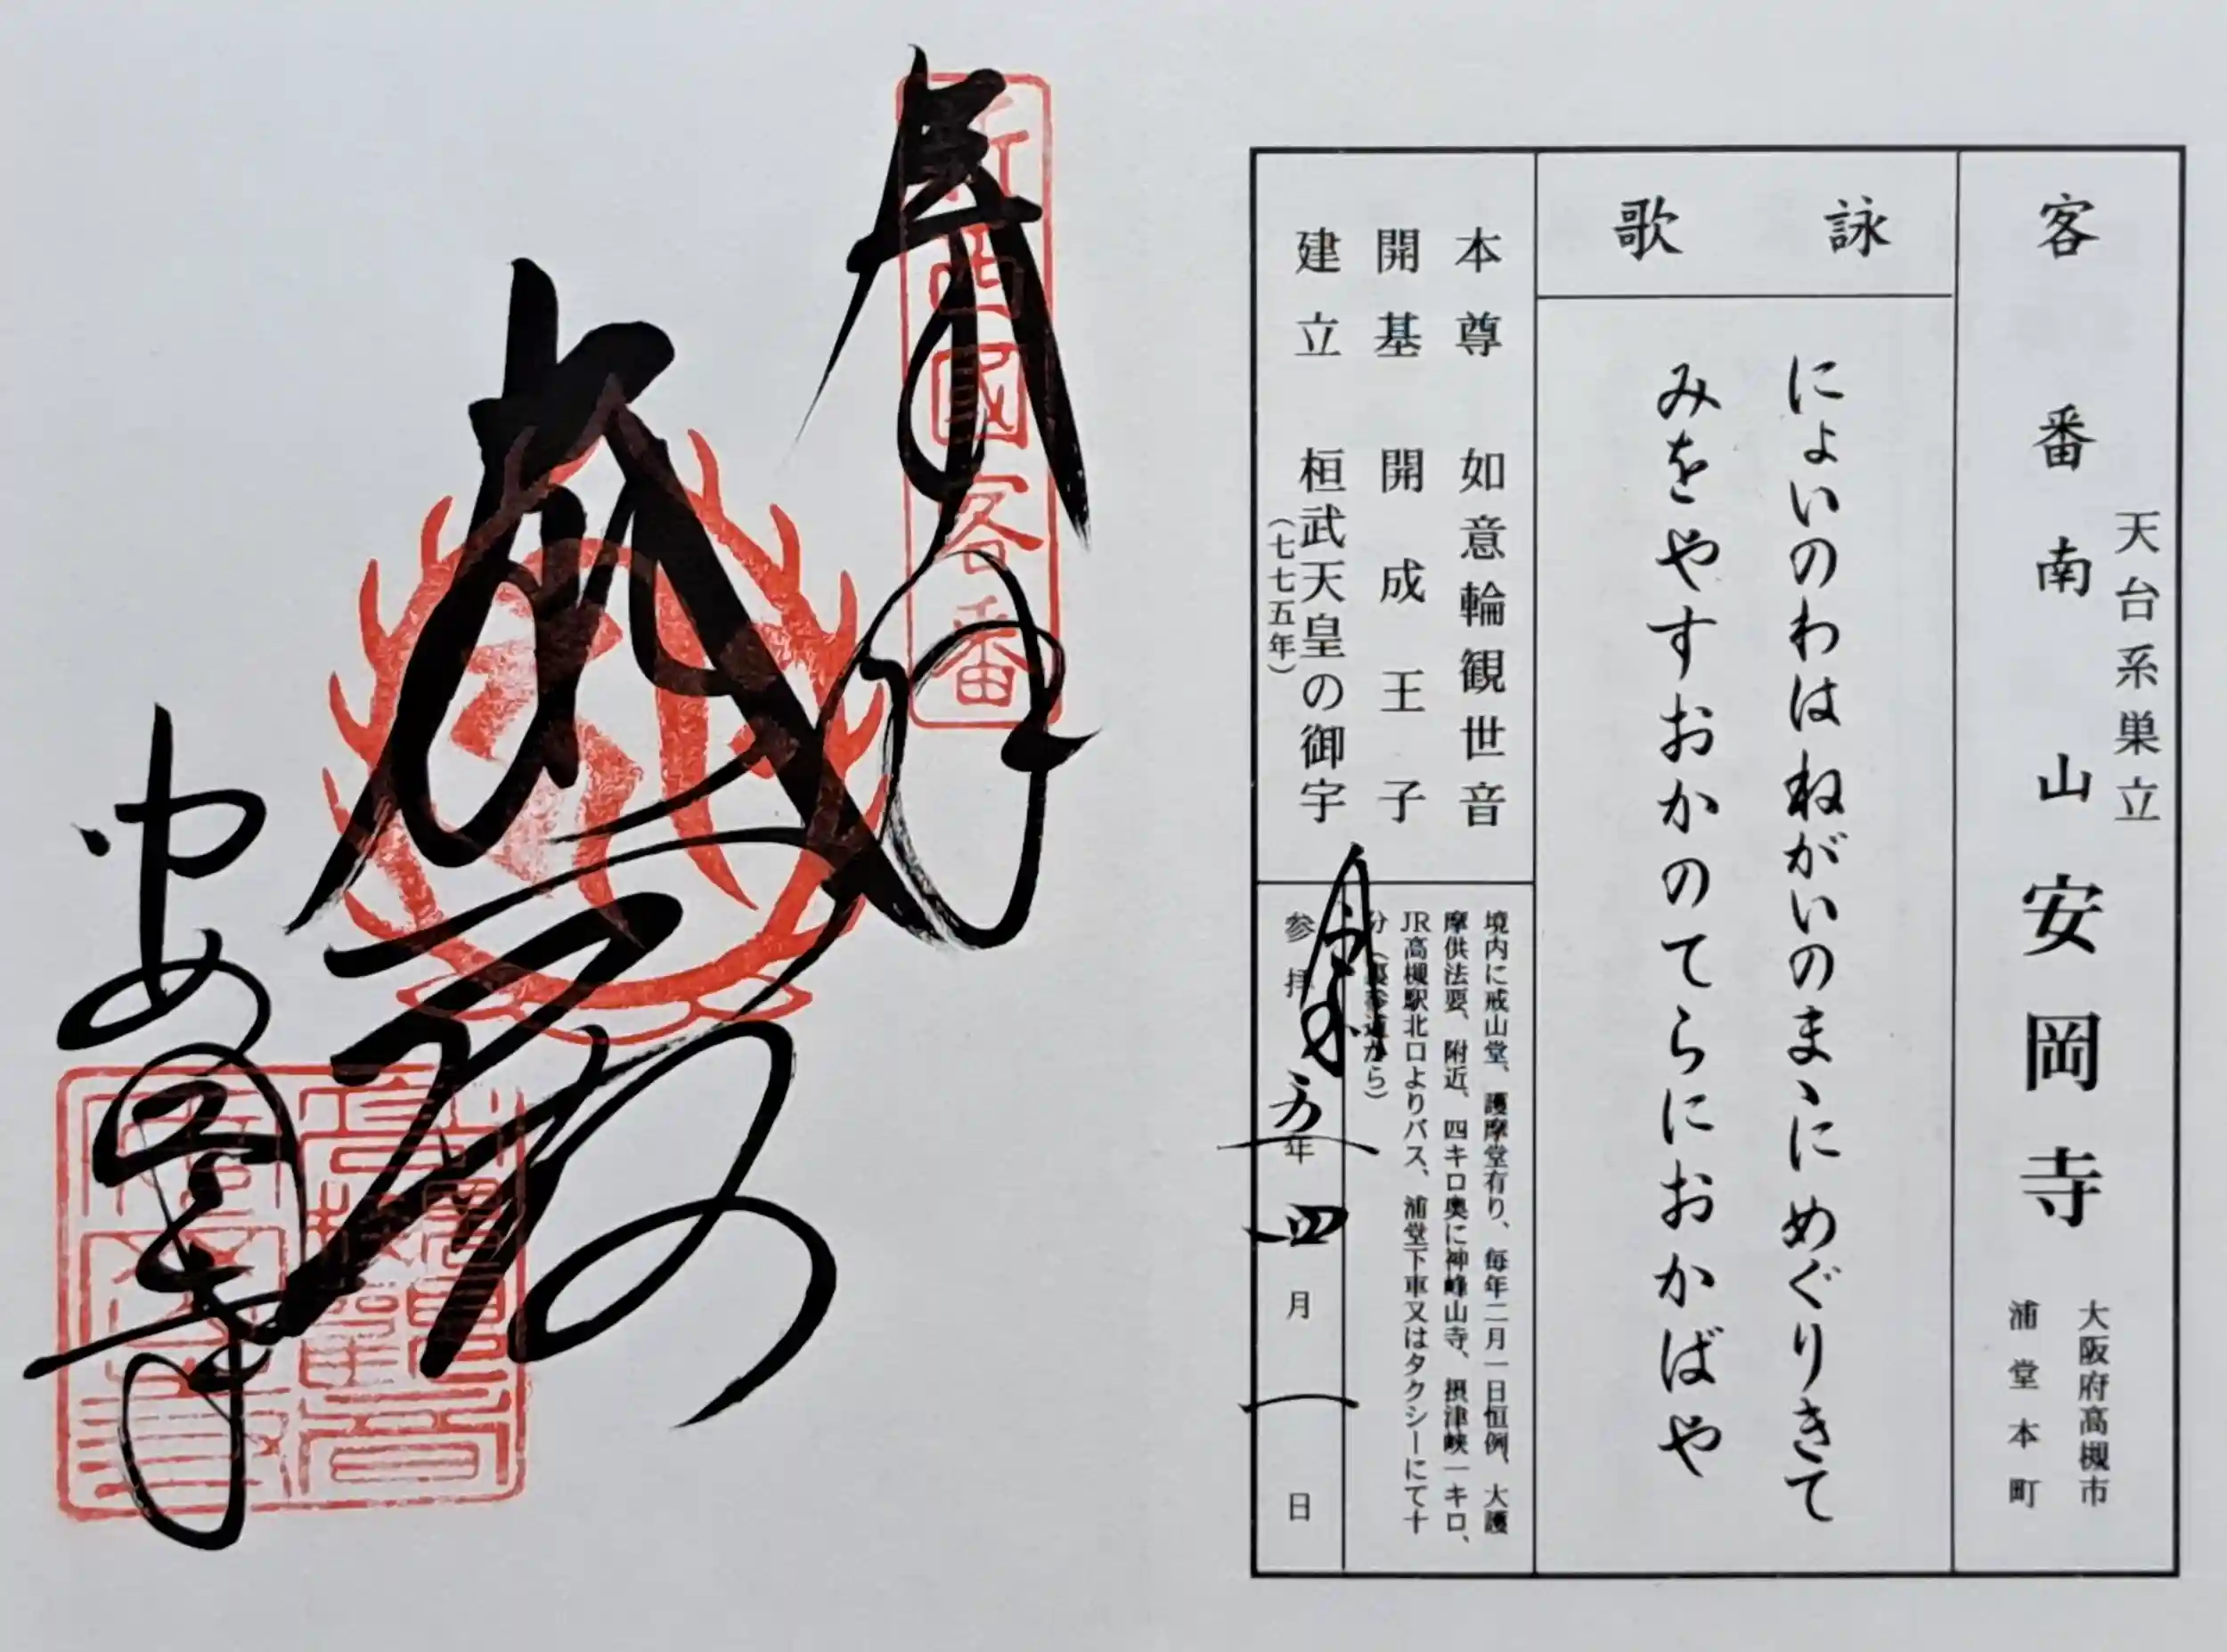 天台系単立
客番 南山 安岡寺
大阪府高槻市
浦堂本町
詠歌
にょいのわはねがいのまゝにめぐりきて
みをやすおかのてらにおかばや
本尊 如意輪観世音
開基 開成王子
建立 桓武天皇の御宇
(七七五年)
境内に戒山堂、護摩堂有り、毎年二月一日恒例、大護
摩供法要、附近、四キロ奥に神峰山寺、摂津峡一キロ、
JR高槻駅北口よりバス、浦堂下車又はタクシーにて十
分(裏参道から)
参拝 令和五年四月一日
奉拝
新西國客番
安岡寺